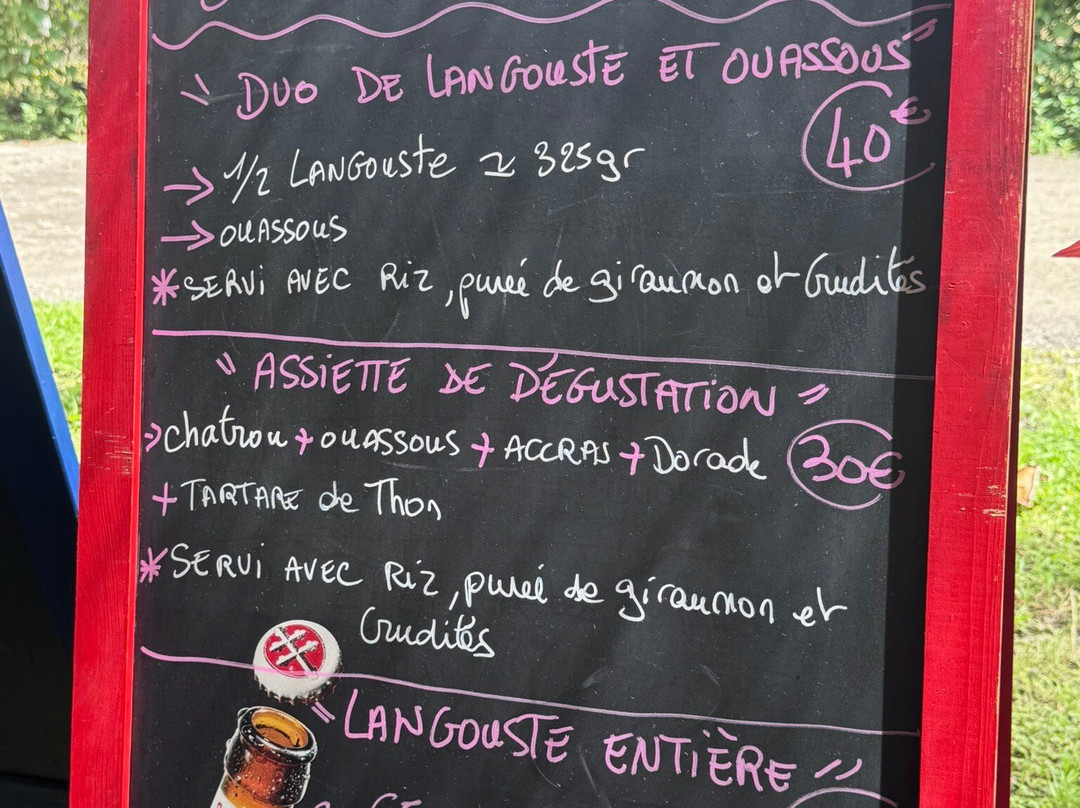 " DUO DE LANGOUSTE ET OUASSOUS "
40€
→ 1/2 LANGOUSTE ≃ 325gr
→ OUASSOUS
* SERVI AVEC RIZ, purée de giraumon et Crudités
" ASSIETTE DE DÉGUSTATION "
→ chatrou + OUASSOUS + ACCRAS + Dorade
30€
+ TARTARE de Thon
* SERVI AVEC RIZ, purée de giraumon et
Crudités
" LANGOUSTE ENTIÈRE "